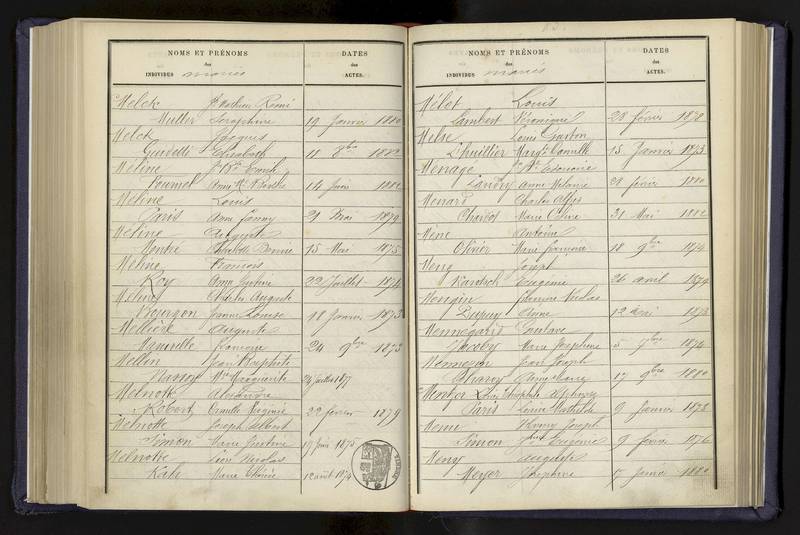 NOMS ET PRÉNOMS
des
INDIVIDUS mariés
DATES
des
ACTES.
Melck Jh Mathieu Rémi
Muller Joséphine 19 Janvier 1880
Melck Jacques
Elisabeth 11 8bre 1882
Méline Jn Bte Emile
Pournel Anne Me 14 Juin 1882
Méline Louis
Paris Anne Fanny 21 Mai 1879
Méline Auguste
15 Mai 1875
Méline François
Roy Anne Justine 22 Juillet 1874
Méline Charles Auguste
Bourgon Jeanne Louise 18 Janvier 1873
Mellière Auguste
Françoise 24 9bre 1873
Mellin Jean Baptiste
Marguerite 24 Juillet 1877
Melnotte Alexandre
Robert Camille Virginie 22 février 1879
Melnotte Joseph Albert
Simon Marie Justine 17 Juin 1875
Melnotte Léon Nicolas
Kahr Marie Thérèse 12 août 1874
NOMS ET PRÉNOMS
des
INDIVIDUS mariés
DATES
des
ACTES.
Mélot Louis
Lambert Véronique 28 février 1878
Melse Louis Gaston
L'huillier Margte Camille 15 Janvier 1873
Ménage
Landry Anne Mélanie 28 février 1880
Menard Charles Alfred
Chardot Marie Céline 31 Mai 1882
Mène Antoine
Olivier Marie Françoise 18 9bre 1874
Meng Joseph
Eugénie 26 avril 1879
Mengin Edmond Nicolas
Dupuy Anne 12 1878
Mennégand Gustave
Jacoby Marie Joséphine 5 7bre 1874
Mennesson Jean Joseph
17 9bre 1880
Alphonse
Paris Louise Mathilde 9 Janvier 1878
Menu Henry Joseph
Simon Eugénie 9 février 1876
Meny Auguste
Meyer Joséphine 5 Janvier 1880